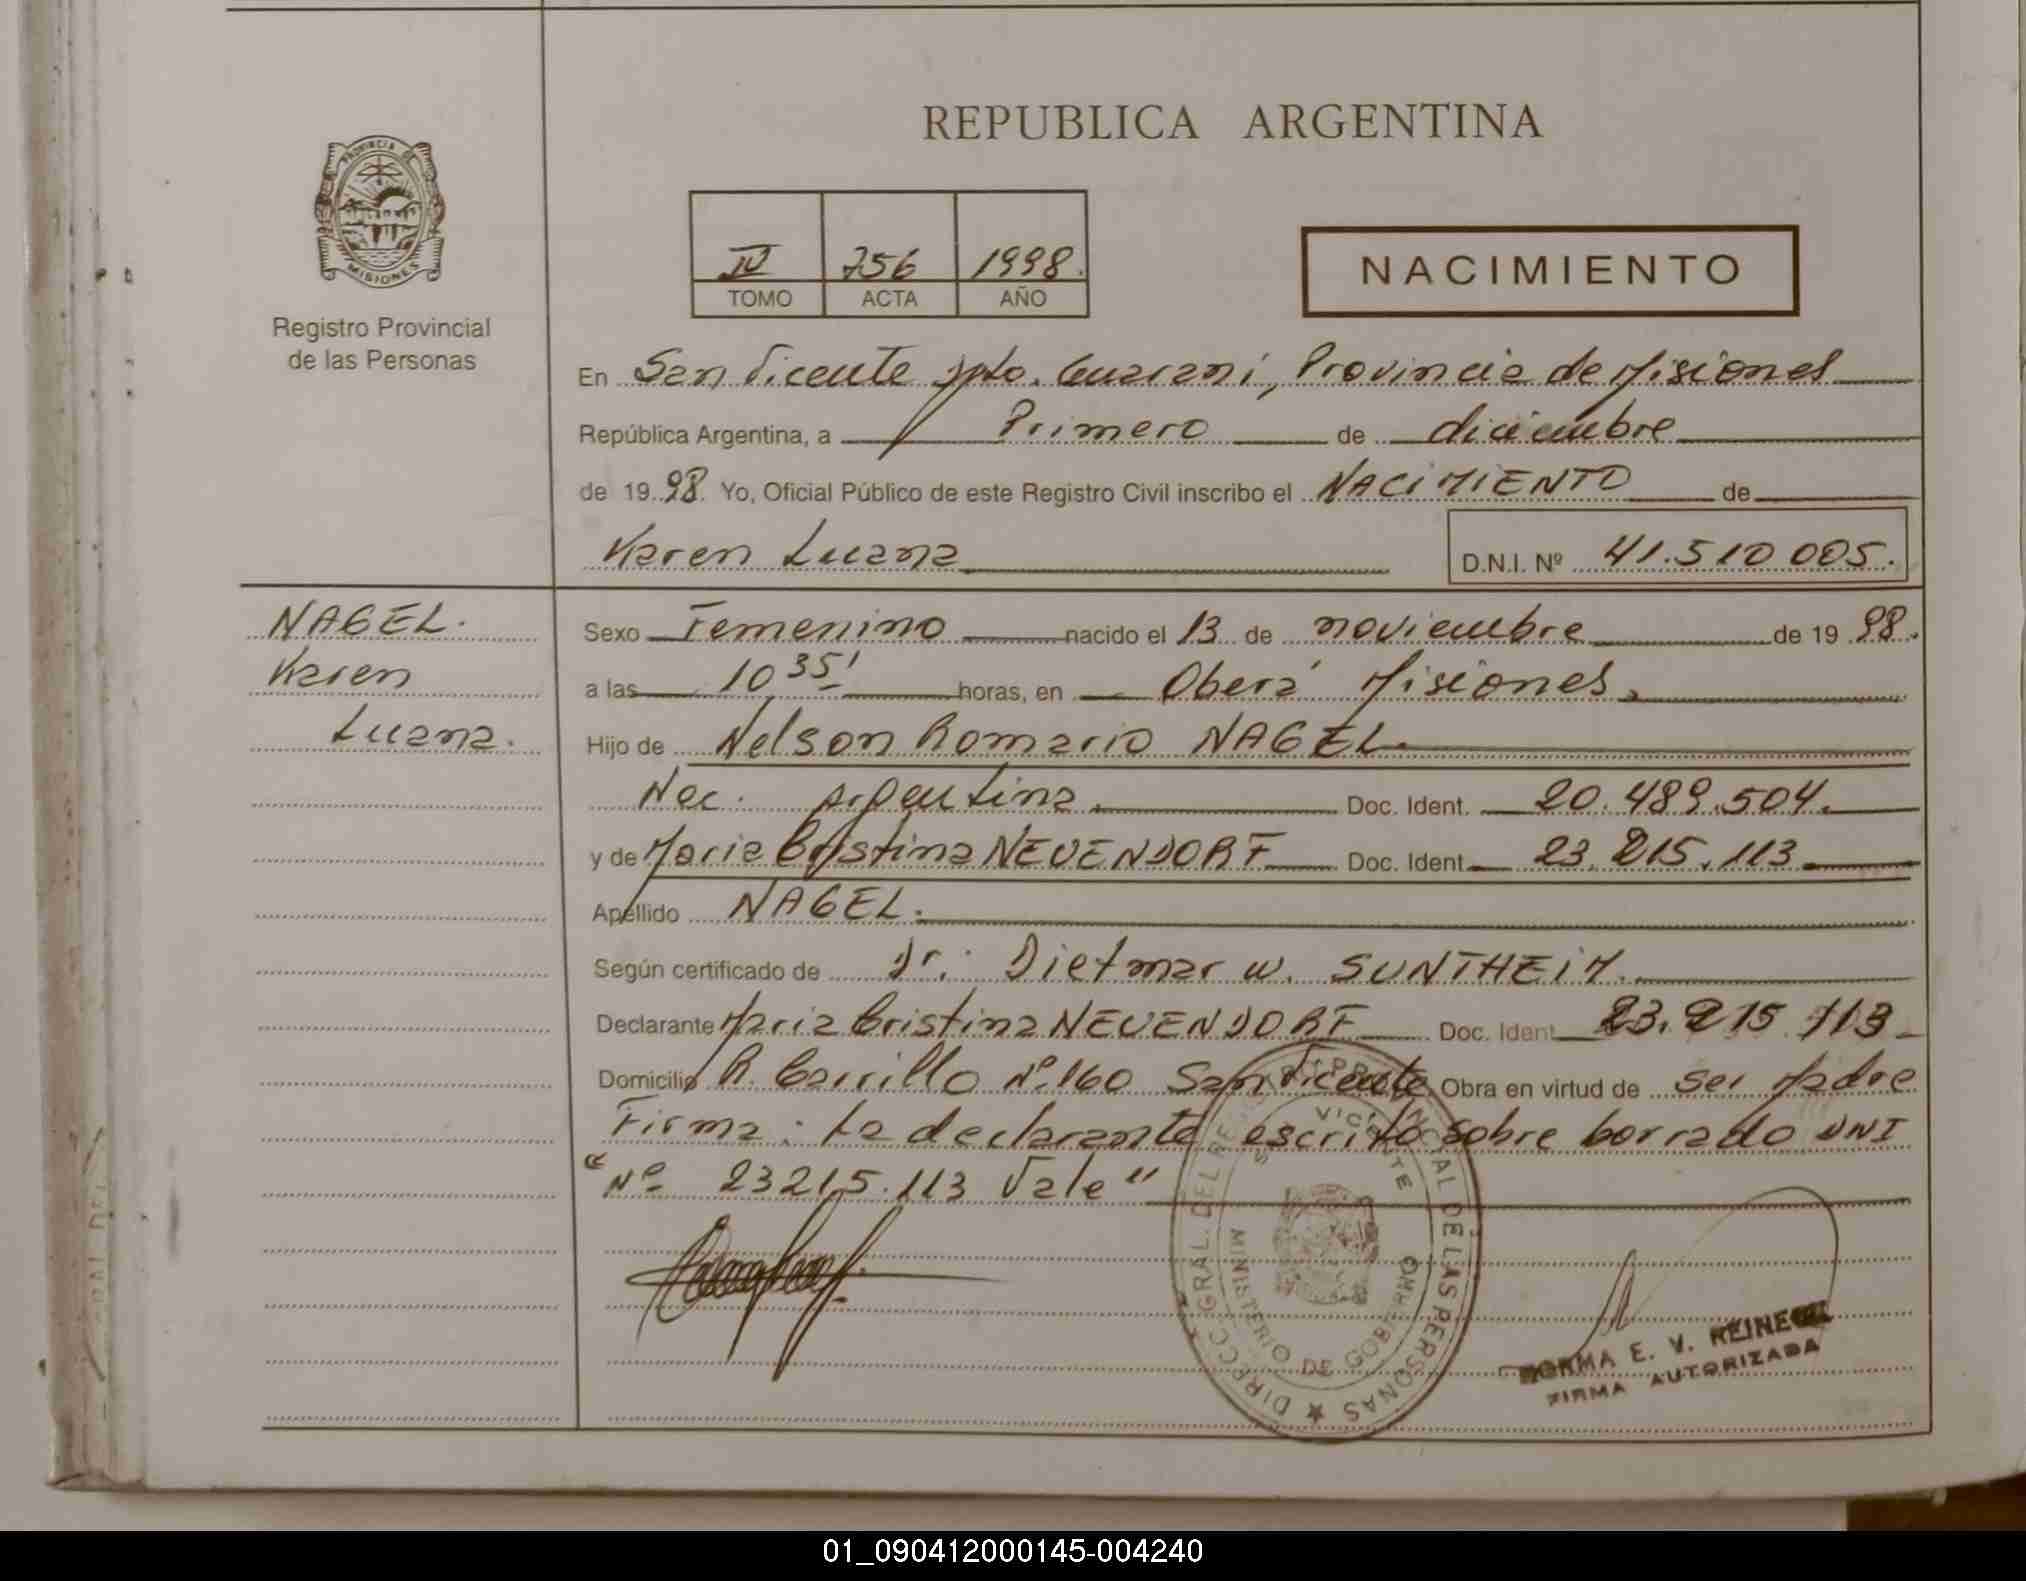 REPUBLICA ARGENTINA
PROVINCIA DE
MISIONES
Registro Provincial
de las Personas
IV 756 1998.
TOMO ACTA AÑO
NACIMIENTO
En San Vicente Dpto. Guaraní, Provincia de Misiones
República Argentina, a Primero de diciembre
de 1998. Yo, Oficial Público de este Registro Civil inscribo el NACIMIENTO de
Karen Luana D.N.I. Nº 41.510 005.
NAGEL.
Karen
Luana.
Sexo Femenino nacido el 13 de noviembre de 1998.
a las 10 35' horas, en Oberá Misiones.
Hijo de Nelson Romario NAGEL.
Nac. Argentina. Doc. Ident. 20.489.504.
y de Maria Cristina NEUENDORF Doc. Ident. 23.215.113.
Apellido NAGEL.
Según certificado de Dr. Dietmar W. SUNTHEIM.
Declarante Maria Cristina NEUENDORF Doc. Ident. 23.215.113
Domicilio R. Carrillo Nº 160 San Vicente Obra en virtud de ser Madre
Firma: La declarante escrito sobre borrado DNI
"Nº 23215.113 Vale"
DIRECC. GRAL. DEL REG. PROVINCIAL DE LAS PERSONAS
SAN VICENTE
MINISTERIO DE GOBIERNO
NORMA E. V. REINECK
FIRMA AUTORIZADA
01_090412000145-004240